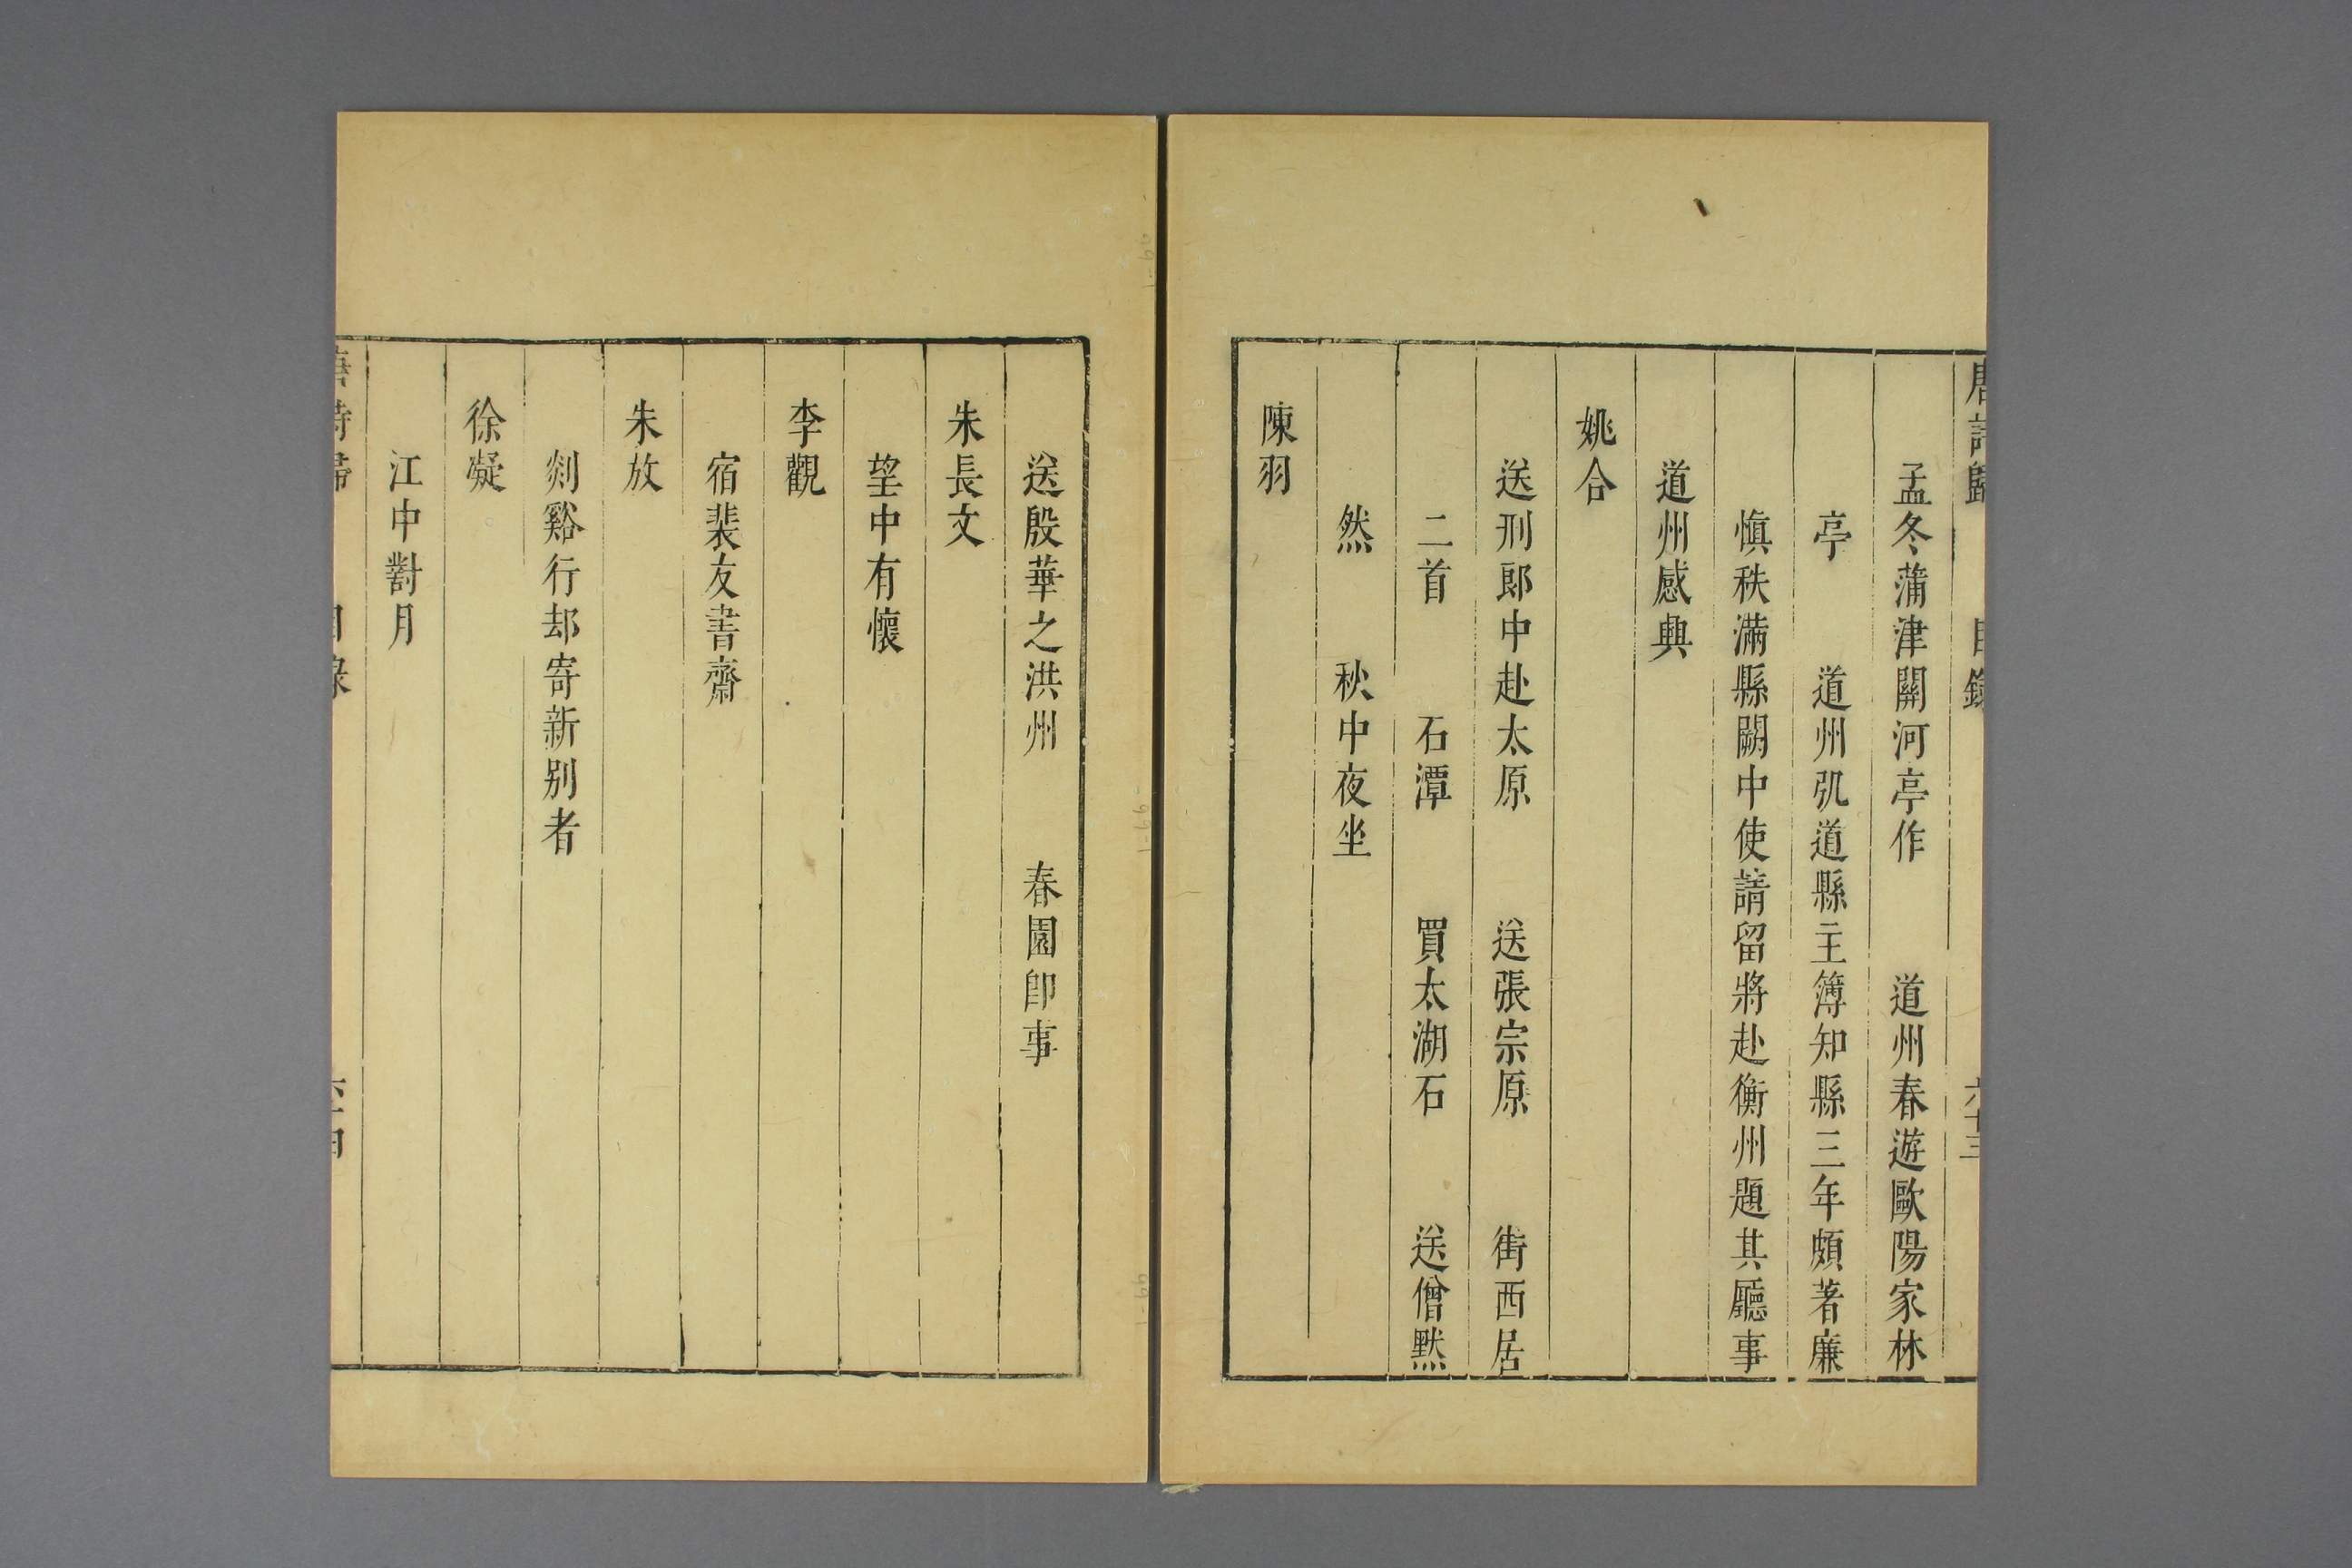 唐詩歸 目錄 六十三
孟冬蒲津關河亭作 道州春遊歐陽家林
亭 道州 道縣主簿知縣三年頗著廉
慎秩滿縣闕中使請留將赴衡州題其廳事
道州感興
姚合
送刑郎中赴太原 送張宗原 街西居
二首 石潭 買太湖石 送僧默
然 秋中夜坐
陳羽
送殷華之洪州 春園卽事
朱長文
望中有懷
李觀
宿裴友書齋
朱放
剡谿行却寄新别者
徐凝
江中對月
唐詩歸 目錄 六十四